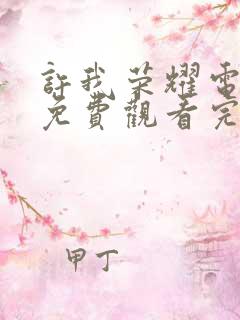 許我荣耀電
免費觀看完
甲丁